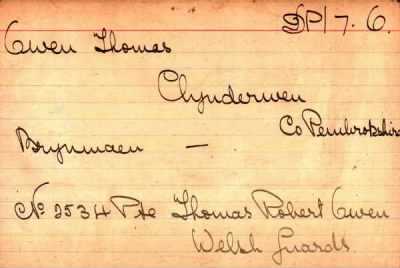 DP/7. 6.
Owen Thomas
Clynderwen
Co Pembrokshire
Brynmaen —
No 2534 Pte Thomas Robert Owen
Welsh Guards